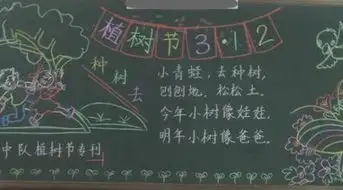 植树节3·12
种树去
小青蛙，去种树，
刨刨地，松松土。
今年小树像娃娃，
明年小树像爸爸。
中队植树节专刊